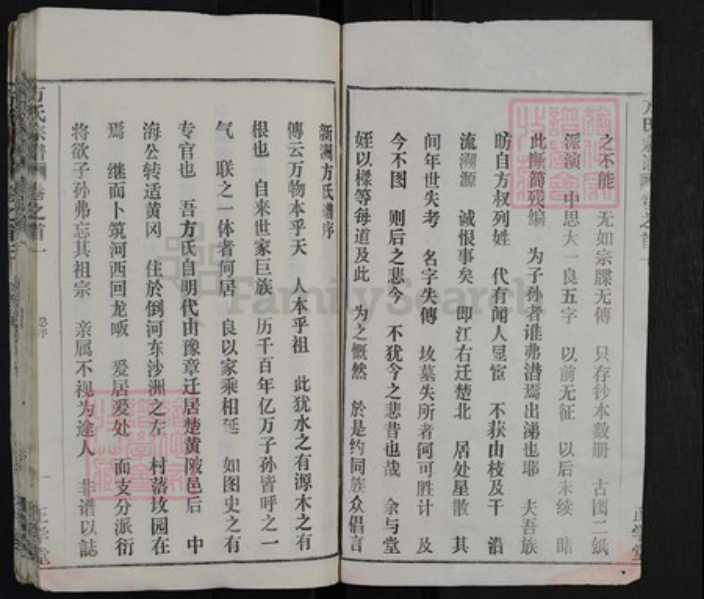 之不能 无如宗牒无傳 只存钞本数册 古图二纸
派演 中思大一良五字 以前无征 以后未续 暗
此断简残编 为子孙者谁弗潜焉出涕也耶 夫吾族
昉自方叔列姓 代有闻人显宦 不获由枝及干 沿
流溯源 诚恨事矣 即江右迁楚北 居处星散 其
间年世失考 名字失傳 坟墓失所者何可胜计 及
今不图 则后之悲今 不犹今之悲昔也哉 余与堂
姪以樑等每道及此 为之慨然 於是约同族众倡言
新洲方氏谱序
傳云万物本乎天 人本乎祖 此犹水之有源木之有
根也 自来世家巨族 历千百年亿万子孙皆呼之一
气 联之一体者何居 良以家乘相延 如图史之有
专官也 吾方氏自明代由豫章迁居楚黄陂邑后 中
海公转适黄冈 住於倒河东沙洲之左 村落坟园在
焉 继而卜筑河西回龙畈 爰居爰处 面支分派衍
将欲子孙弗忘其祖宗 亲属不视为途人 非谱以誌
方氏宗谱 卷之首一
正学堂
FamilySearch